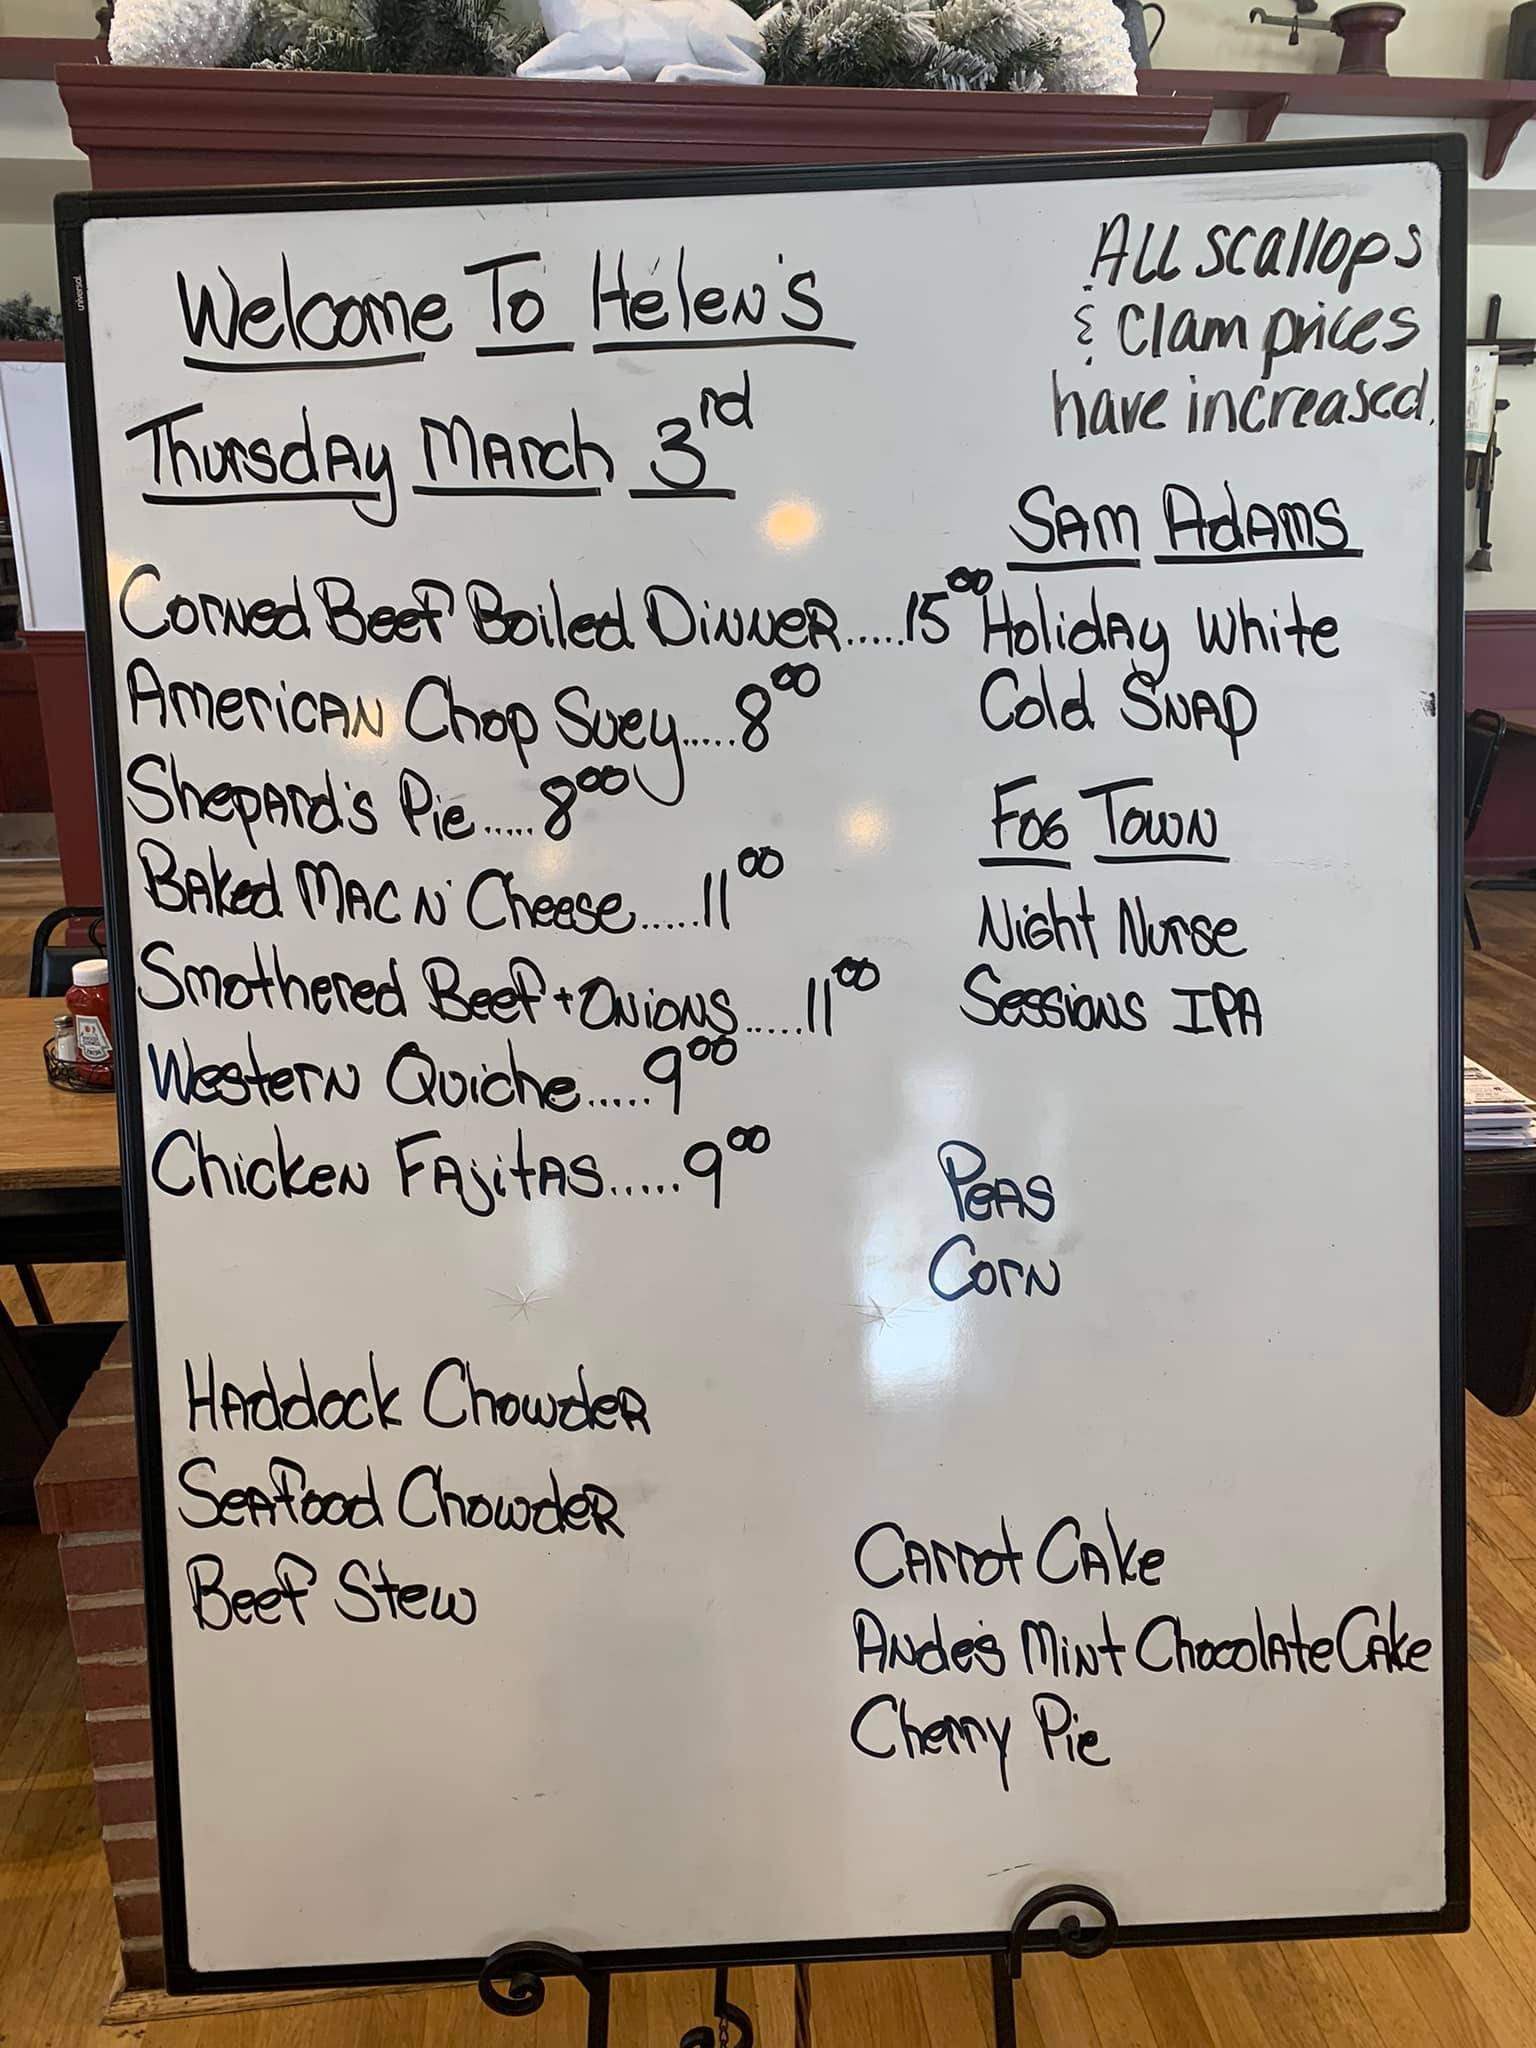 Welcome To Helen's
Thursday March 3rd
All scallops
& Clam prices
have increased.
Corned Beef Boiled Dinner.....15 00
American Chop Suey.....8 00
Shepard's Pie.....8 00
Baked Mac N' Cheese.....11 00
Smothered Beef + Onions.....11 00
Western Quiche.....9 00
Chicken Fajitas.....9 00
Sam Adams
Holiday White
Cold Snap
Fog Town
Night Nurse
Sessions IPA
Peas
Corn
Haddock Chowder
Seafood Chowder
Beef Stew
Carrot Cake
Ande's Mint Chocolate Cake
Cherry Pie
universal